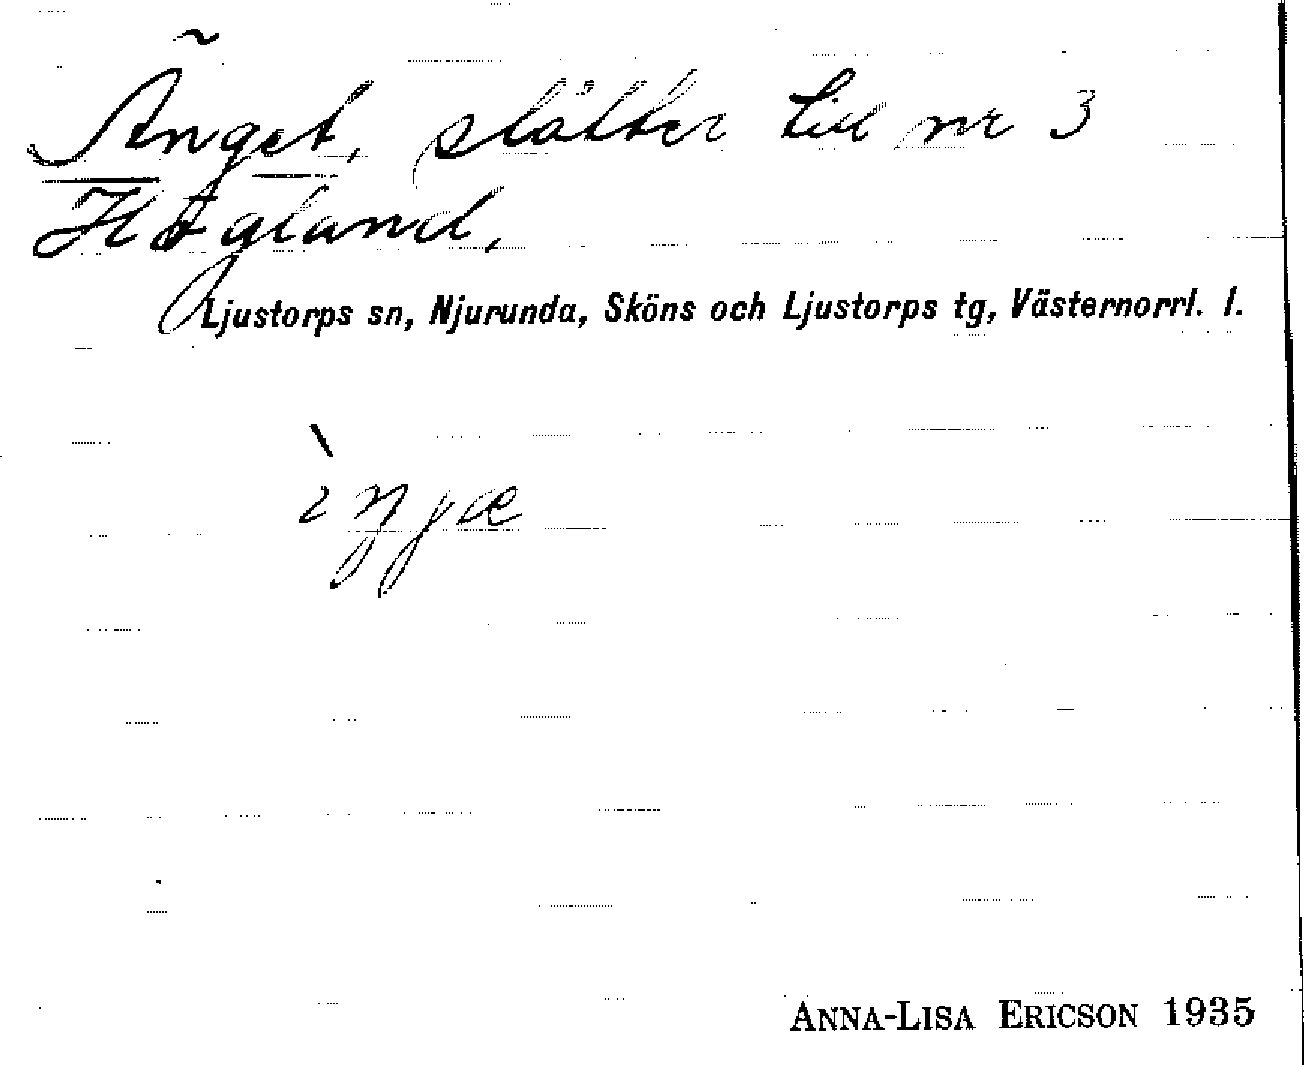 Änget, slåtter till nr 3
Högland.
Ljustorps sn, Njurunda, Sköns och Ljustorps tg, Västernorrl. l.
ANNA-LISA ERICSON 1935